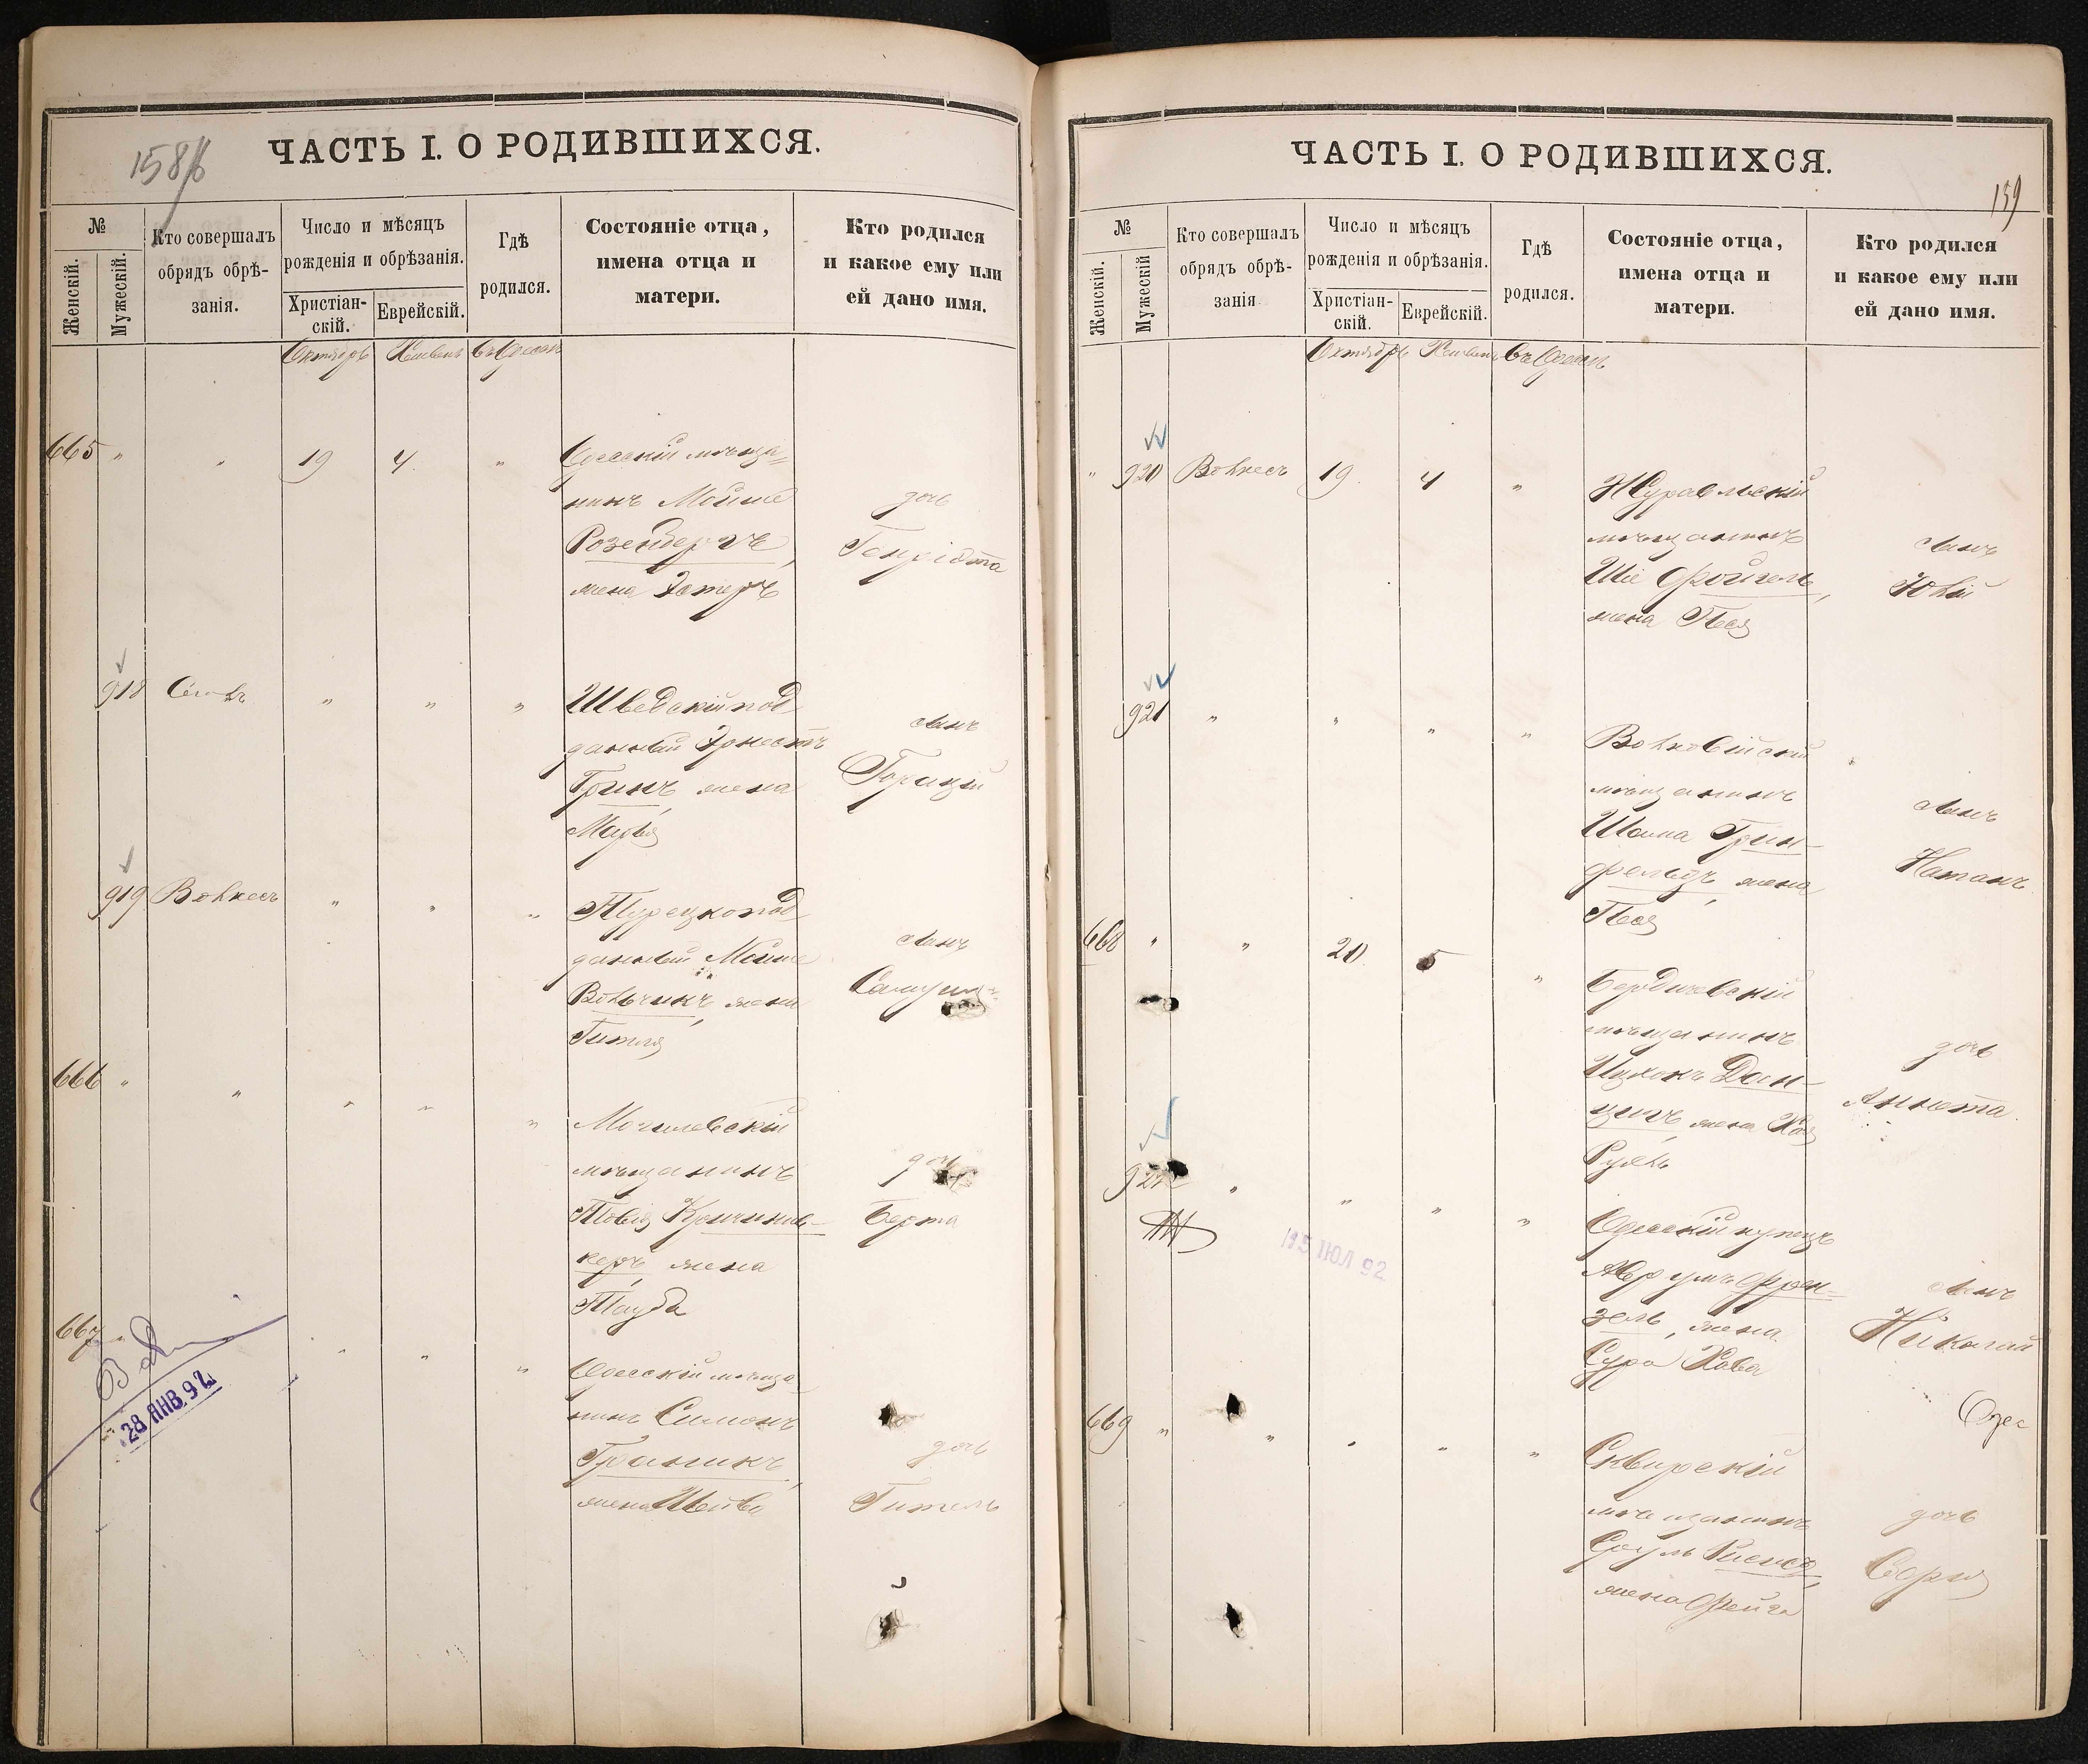 158
ЧАСТЬ I. О РОДИВШИХСЯ.
№
Женскій.
Мужескій.
Кто совершалъ
обрядъ обрѣ-
занія.
Число и мѣсяцъ
рожденія и обрѣзанія.
Христіан-
скій.
Еврейскій.
Гдѣ
родился.
Состояніе отца,
имена отца и
матери.
Кто родился
и какое ему или
ей дано имя.
Октябрь Хешвенъ въ Одессѣ
665 " " 19 4 "
Одесскій мѣща-
нинъ Мойше
Розенбергъ,
жена Эстеръ
дочь
Генріэтта
918 " " "
Шведскій под
данный Эрнестъ
Гринъ, жена
Марья
сынъ
Горацій
919 Волкесъ " " "
Турецкопод
данный Мойше
Вольчикъ, жена
Гитля
сынъ
666 " " " " "
Могилевскій
мѣщанинъ
Товія
керъ, жена
Тауба
дочь
Берта
667 " " " "
28 ЯНВ. 92
Одесскій мѣща
нинъ Симонъ
Граникъ,
жена Шейва
дочь
Гитель
ЧАСТЬ I. О РОДИВШИХСЯ.
159
№
Женскій.
Мужескій
Кто совершалъ
обрядъ обрѣ-
занія
Число и мѣсяцъ
рожденія и обрѣзанія.
Христіан-
скій.
Еврейскій.
Гдѣ
родился.
Состояніе отца,
имена отца и
матери.
Кто родился
и какое ему или
ей дано имя.
Октябрь Хешвенъ въ Одессѣ
" 920 Волкесъ 19 4 "
мѣщанинъ
Шіе Фройгель,
жена Песя
сынъ
Юлій
921 " " " "
мѣщанинъ
Шома Грин-
фельдъ, жена
Песя
сынъ
Натанъ
668 " " 20 5 "
Бердичевскій
мѣщанинъ
Ицхокъ Дан-
цигъ, жена Хая
Рухль
дочь
Аннета
922 " " " "
15 ИЮЛ 92
Одесскій купецъ
Аврумъ Френ-
зель, жена
Сура Хава
сынъ
Николай
669 " " " " "
Сквирскій
мѣщанинъ
Сруль
жена Фейга
дочь